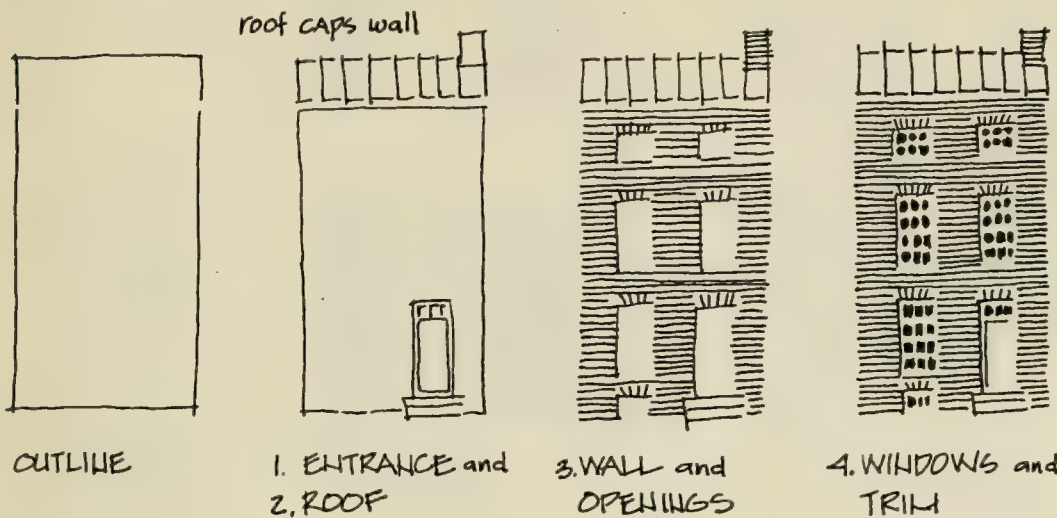 roof CAPS wall
OUTLINE
1. ENTRANCE and
2. ROOF
3. WALL and
OPENINGS
4. WINDOWS and
TRIM